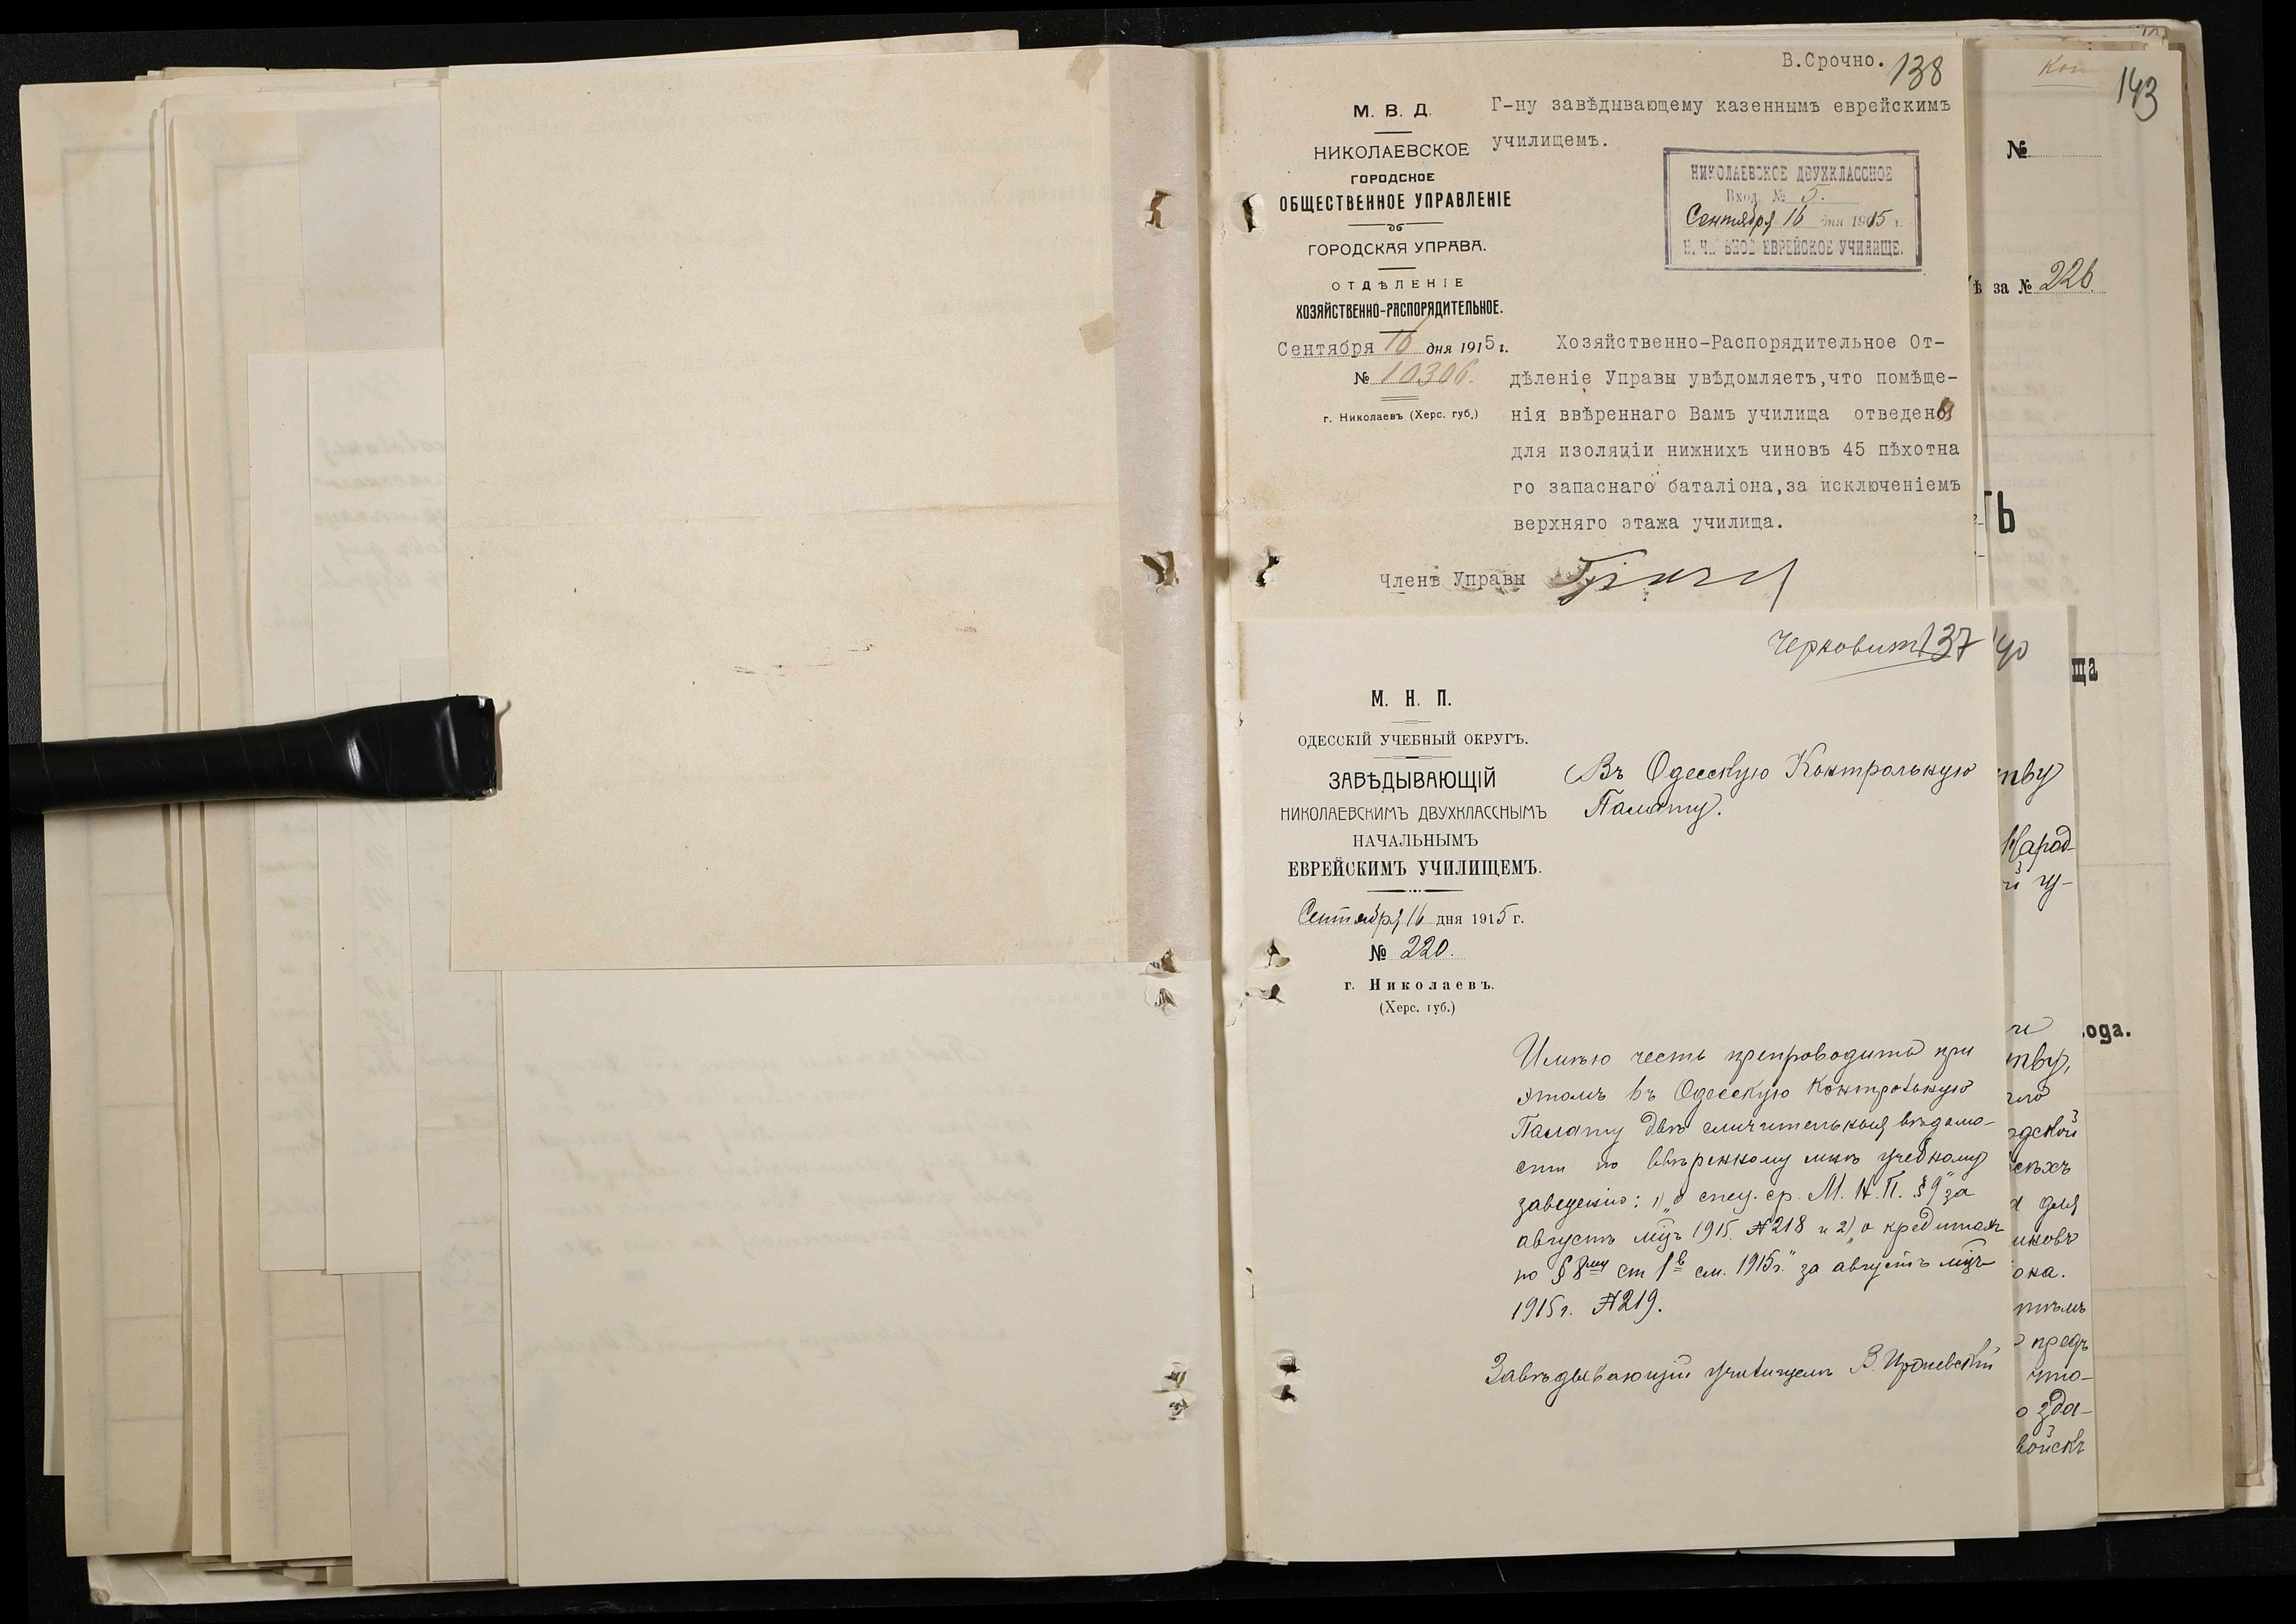 В.Срочно. 138
М. В. Д.
НИКОЛАЕВСКОЕ
ГОРОДСКОЕ
ОБЩЕСТВЕННОЕ УПРАВЛЕНІЕ
ГОРОДСКАЯ УПРАВА.
ОТДѢЛЕНІЕ
ХОЗЯЙСТВЕННО-РАСПОРЯДИТЕЛЬНОЕ.
Сентября 16 дня 1915 г.
№ 10306.
г. Николаевъ (Херс. губ.)
Г-ну завѣдывающему казеннымъ еврейскимъ
училищемъ.
НИКОЛАЕВСКОЕ ДВУХКЛАССНОЕ
Вход. № 5.
Сентября 16 дня 1915 г.
ЕВРЕЙСКОЕ УЧИЛИЩЕ.
Хозяйственно-Распорядительное От-
дѣленіе Управы увѣдомляетъ,что помѣще-
нія ввѣреннаго Вамъ училища отведены
для изоляціи нижнихъ чиновъ 45 пѣхотна
го запаснаго баталіона,за исключеніемъ
верхняго этажа училища.
Членъ Управы
137
М. Н. П.
ОДЕССКІЙ УЧЕБНЫЙ ОКРУГЪ.
ЗАВѢДЫВАЮЩІЙ
НИКОЛАЕВСКИМЪ ДВУХКЛАССНЫМЪ
НАЧАЛЬНЫМЪ
ЕВРЕЙСКИМЪ УЧИЛИЩЕМЪ.
Сентября 16 дня 1915 г.
№ 220.
г. Николаевъ.
(Херс. губ.)
Въ Одесскую Контрольную
Палату.
Имѣю честь препроводить при
этомъ въ Одесскую Контрольную
Палату двѣ сличительныя вѣдомо-
сти по ввѣренному мнѣ учебному
заведенію: 1) "о спец. ср. М. Н. П. § 9" за
августъ мцъ 1915. № 218 и 2) "о кредитахъ
по § 8 ст 1 см. 1915г." за августъ мцъ
1915 г. № 219.
Завѣдывающій училищемъ В.
143
№
ѣ за № 226.
ТЬ
40
ща
тву
Народ-
й гу-
ода.
тву,
одской
для
иковъ
она.
предъ
что-
о зда-
войскъ